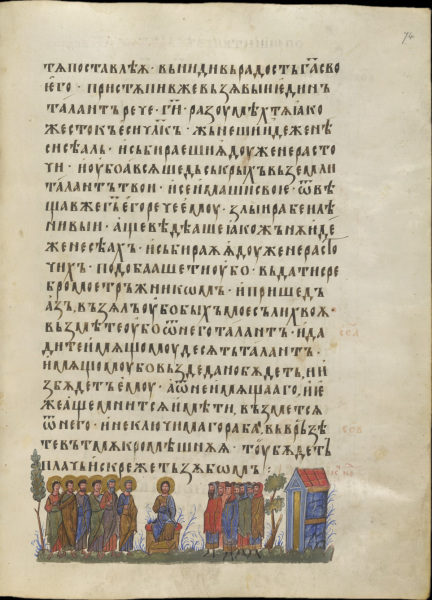 74
тѧ поставлѫ · вьниди вь радость га҃ сво
его · пристѫпи же вьзѧвыи единъ
талантъ рече · ги҃ · разоумѣхь тѧ ꙗко
жестокъ еси чл҃къ · жьнеши идеже не
си сѣалъ · и събираеши ѫдоуже не расто
чи · и оубоавсѧ шедь съкрыхъ въ земли
талантъ твои · и се имаши свое · ѿвѣ
щав же гь҃ его рече емоу · злыи рабе и лѣ
нивыи · аще вѣдѣаше ꙗко жънѫ иде
же не сѣахъ · и събираѫ ѫдоуже не расто
чихъ · подобааше ти оубо · въдати сре
бро мое тръжникѡмъ · и пришедъ
азъ, възѧлъ оубо быхъ мое съ лихвоѫ ·
възмѣте оубо ѿ него талантъ · и да
дите имѫщомоу десѧть талантъ ·
имѫщомоу бо въздедано бѫдеть, и и
збѫдетъ емоу · а ѿ не имѫщааго, и и
же аще мнитсѧ имѣти, възметсѧ
ѿ него · и неключимаго раба, въврьзѣ
те въ тъмѫ кромѣшнѧѧ · тоу бѫдеть
плачь и скрежеть зѫбѡмъ :